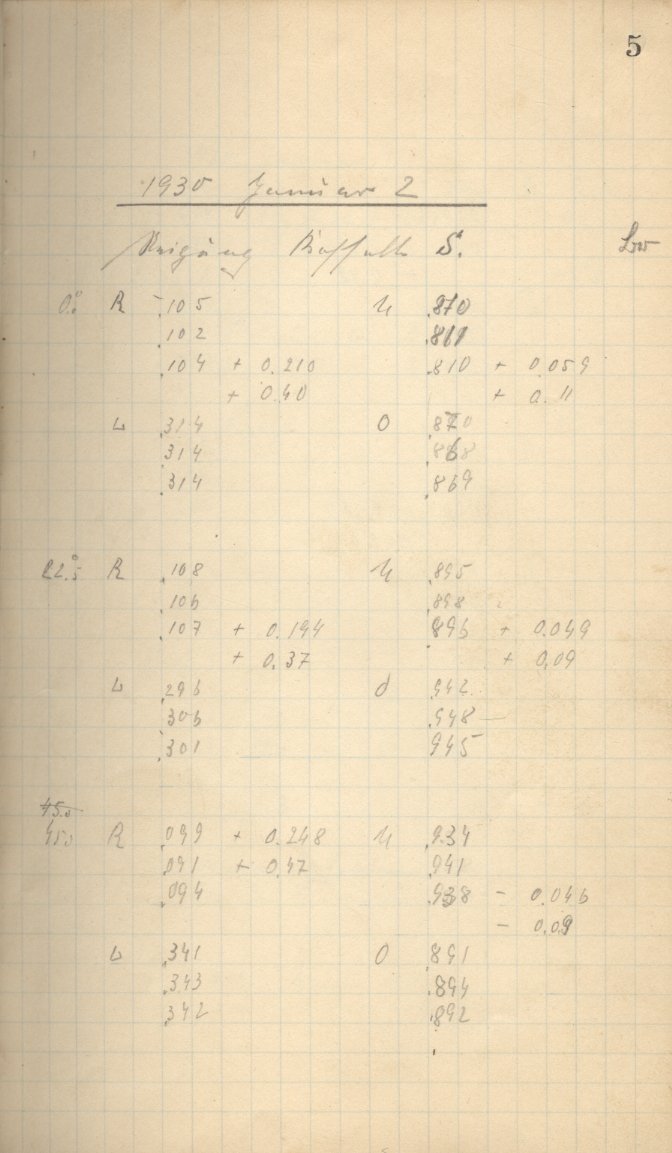 5
1930 Januar 2
Neigung S.
0.° R .105 U .870
.102 .861
.104 + 0.210 .810 + 0.059
+ 0.40 + 0.11
L .314 O 870
.314 868
.314 .869
22.°5 R .108 U .895
.106 .898
.107 + 0.194 896 + 0.049
+ 0.37 + 0.09
L .296 O .942
.306 .948
.301 945
45.0
45.0 R .099 + 0.248 U .934
.091 + 0.47 .941
.094 .938 - 0.046
- 0.09
L .341 O .891
.343 .894
.342 .892